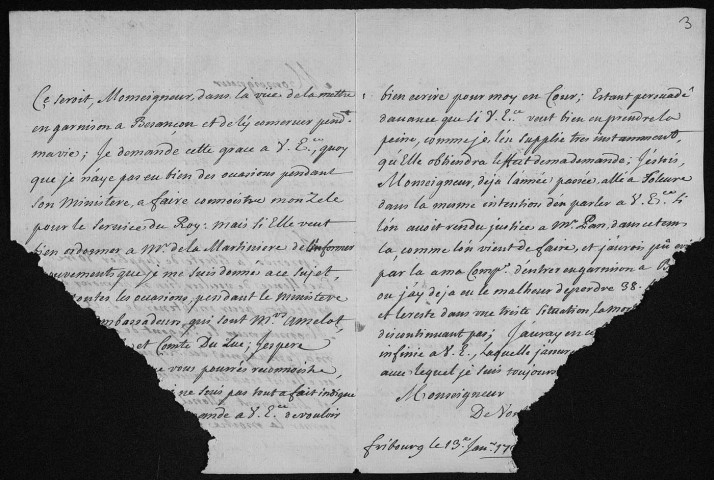 3
Ce seroit, Monseigneur, dans la vüe de la mettre
en garnison a Besançon et de l'y conserver pend.t
ma vie; Je demande cette grace a V. E.ce quoy
que je n'aye pas eu bien des ocasions pendant
son Ministere, a faire connoistre mon Zele
pour le Service du Roy: mais si Elle veut
bien ordonner a M.r de la Martiniere de l'informer
ouvements que je me suis donné a ce sujet
toutes les ocasions, pendant le ministere
mbassadeurs, qui sont M.rs Amelot,
et Comte Du Luc; J'espere
e vous pourrés reconnoistre,
i ne suis pas tout a fait indigne
ande a V. E.ce de vouloir
bien ecrire pour moy en Cour; Estant persuadé
d'auance que si V. E.ce veut bien en prendre la
peine, comme je l'en supplie tres instamment,
qu'Elle obtiendra l'effect de ma demande; J'estois,
Monseigneur, deja l'année passée, allé a Soleure
dans la mesme intention d'en parler a V. E.ce si
l'on auoit rendu justice a M.r Pan, dans ce tems
la, comme l'on vient de faire, et j'aurois pû
par la a ma Comp.e d'entrer en garnison a B
ou j'ay deja eu le malheur de perdre 38.
et le reste dans une triste situation, la mor
discontinuant pas; J'auray en
infinie a V. E., laquelle
auec lequel je suis toujours
Monseigneur
De Von
fribourg le 13.e Jan.r 17